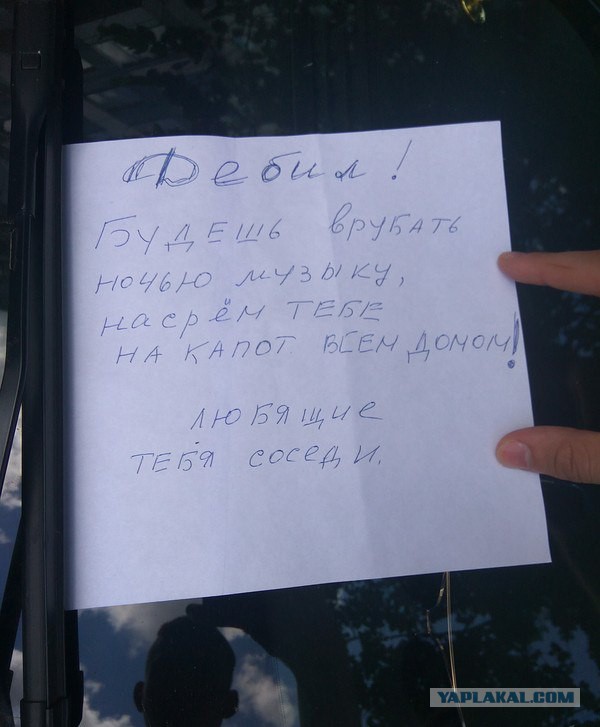 Дебил!
Будешь врубать
ночью музыку,
насрём тебе
на капот всем домом!
любящие
тебя соседи.
YAPLAKAL.COM